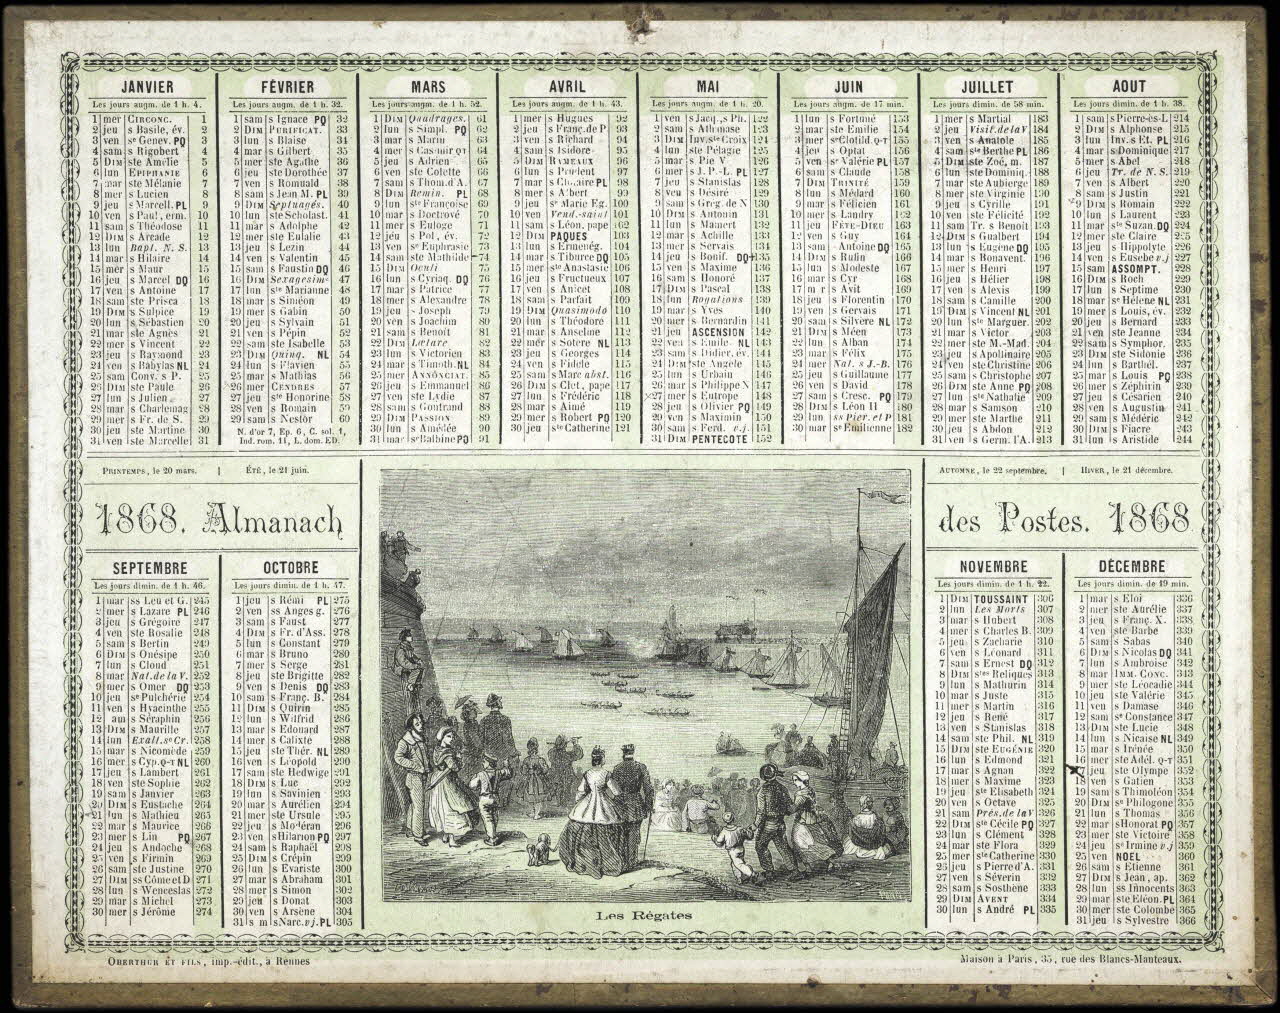 JANVIER
Les jours augm. de 1 h. 4.
1 mer CIRCONC. 1
2 jeu s Basile, év. 2
3 ven se Genev. PQ 3
4 sam s Rigobert 4
5 DIM ste Amélie 5
6 lun EPIPHANIE 6
7 mar ste Mélanie 7
8 mer s Lucien 8
9 jeu s Marcell. PL 9
10 ven s Paul, erm. 10
11 sam s Théodose 11
12 DIM s Arcade 12
13 lun Bapt. N. S. 13
14 mar s Hilaire 14
15 mer s Maur 15
16 jeu s Marcel DQ 16
17 ven s Antoine 17
18 sam ste Prisca 18
19 DIM s Sulpice 19
20 lun s Sébastien 20
21 mar ste Agnès 21
22 mer s Vincent 22
23 jeu s Raymond 23
24 ven s Babylas NL 24
25 sam Conv. s P. 25
26 DIM ste Paule 26
27 lun s Julien 27
28 mar s Charlemag 28
29 mer s Fr. de S. 29
30 jeu ste Martine 30
31 ven ste Marcelle 31
FÉVRIER
Les jours augm. de 1 h. 32.
1 sam s Ignace PQ 32
2 DIM PURIFICAT. 33
3 lun s Blaise 34
4 mar s Gilbert 35
5 mer ste Agathe 36
6 jeu ste Dorothée 37
7 ven s Romuald 38
8 sam s Jean M. PL 39
9 DIM Septuagés. 40
10 lun ste Scholast. 41
11 mar s Adolphe 42
12 mer ste Eulalie 43
13 jeu s Lezin 44
14 ven s Valentin 45
15 sam s Faustin DQ 46
16 DIM Sexagesim. 47
17 lun ste Marianne 48
18 mar s Siméon 49
19 mer s Gabin 50
20 jeu s Sylvain 51
21 ven s Pépin 52
22 sam ste Isabelle 53
23 DIM Quinq. NL 54
24 lun s Flavien 55
25 mar s Mathias 56
26 mer CENDRES 57
27 jeu ste Honorine 58
28 ven s Romain 59
29 sam s Nestor 60
N. d'or 7, Ep. 6, C. sol. 1,
Ind. rom. 11, L. dom. ED.
MARS
Les jours augm. de 1 h. 52.
1 DIM Quadrages. 61
2 lun s Simpl. PQ 62
3 mar s Marin 63
4 mer s Casimir QT 64
5 jeu s Adrien 65
6 ven ste Colette 66
7 sam s Thom. d A. 67
8 DIM Remin. PL 68
9 lun ste Françoise 69
10 mar s Doctrové 70
11 mer s Euloge 71
12 jeu s Pol, év. 72
13 ven se Euphrasie 73
14 sam ste Mathilde 74
15 DIM Oculi 75
16 lun s Cyriaq. DQ 76
17 mar s Patrice 77
18 mer s Alexandre 78
19 jeu s Joseph 79
20 ven s Joachim 80
21 sam s Benoît 81
22 DIM Lætare 82
23 lun s Victorien 83
24 mar s Timoth. NL 84
25 mer ANNONCIAT. 85
26 jeu s Emmanuel 86
27 ven ste Lydie 87
28 sam s Gontrand 88
29 DIM Passion 89
30 lun s Amédée 90
31 mar se Balbine PQ 91
AVRIL
Les jours augm. de 1 h. 43.
1 mer s Hugues 92
2 jeu s Franç. de P 93
3 ven s Richard 94
4 sam s Isidore 95
5 DIM RAMEAUX 96
6 lun s Prudent 97
7 mar s Clotaire PL 98
8 mer s Albert 99
9 jeu se Marie Eg. 100
10 ven Vend.-saint 101
11 sam s Léon, pape 102
12 DIM PAQUES 103
13 lun s Erménég. 104
14 mar s Tiburce DQ 105
15 mer ste Anastasie 106
16 jeu s Fructueux 107
17 ven s Anicet 108
18 sam s Parfait 109
19 DIM Quasimodo 110
20 lun s Théodore 111
21 mar s Anselme 112
22 mer s Sotere NL 113
23 jeu s Georges 114
24 ven s Fidele 115
25 sam s Marc abst. 116
26 DIM s Clet, pape 117
27 lun s Frédéric 118
28 mar s Aimé 119
29 mer s Robert PQ 120
30 jeu ste Catherine 121
MAI
Les jours augm. de 1 h. 20.
1 ven s Jacq., s Ph. 122
2 sam s Athanase 123
3 DIM Inv. ste Croix 124
4 lun ste Pélagie 125
5 mar s Pie V 126
6 mer s J. P.-L. PL 127
7 jeu s Stanislas 128
8 ven s Désiré 129
9 sam s Grég. de N 130
10 DIM s Antonin 131
11 lun s Mamert 132
12 mar s Achille 133
13 mer s Servais 134
14 jeu s Bonif. DQ 135
15 ven s Maxime 136
16 sam s Honoré 137
17 DIM s Pascal 138
18 lun Rogations 139
19 mar s Yves 140
20 mer s Bernardin 141
21 jeu ASCENSION 142
22 ven s Emile NL 143
23 sam s Didier, év. 144
24 DIM ste Angèle 145
25 lun s Urbain 146
26 mar s Philippe N 147
27 mer s Eutrope 148
28 jeu s Olivier PQ 149
29 ven s Maximin 150
30 sam s Ferd. v.j. 151
31 DIM PENTECOTE 152
JUIN
Les jours augm. de 17 min.
1 lun s Fortuné 153
2 mar ste Emilie 154
3 mer se Clotild. Q-T 155
4 jeu s Optat 156
5 ven s Valérie PL 157
6 sam s Claude 158
7 DIM TRINITÉ 159
8 lun s Médard 160
9 mar s Félicien 161
10 mer s Landry 162
11 jeu FÊTE-DIEU 163
12 ven s Guy 164
13 sam s Antoine DQ 165
14 DIM s Rufin 166
15 lun s Modeste 167
16 mar s Cyr 168
17 m r s Avit 169
18 jeu s Florentin 170
19 ven s Gervais 171
20 sam s Silvère NL 172
21 DIM s Méen 173
22 lun s Alban 174
23 mar s Félix 175
24 mer Nat. s J.-B. 176
25 jeu s Guillaume 177
26 ven s David 178
27 sam s Cresc. PQ 179
28 DIM s Léon II 180
29 lun ss Pier. et P 181
30 mar s Emilienne 182
JUILLET
Les jours dimin. de 58 min.
1 mer s Martial 183
2 jeu Visit. de la V 184
3 ven s Anatole 185
4 sam ste Berthe PL 186
5 DIM ste Zoé, m. 187
6 lun ste Dominiq. 188
7 mar ste Aubierge 189
8 mer ste Virginie 190
9 jeu s Cyrille 191
10 ven ste Félicité 192
11 sam Tr. s Benoît 193
12 DIM s Gualbert 194
13 lun s Eugène DQ 195
14 mar s Bonavent. 196
15 mer s Henri 197
16 jeu s Hélier 198
17 ven s Alexis 199
18 sam s Camille 200
19 DIM s Vincent NL 201
20 lun ste Marguer. 202
21 mar s Victor 203
22 mer ste M.-Mad. 204
23 jeu s Apollinaire 205
24 ven ste Christine 206
25 sam s Christophe 207
26 DIM ste Anne PQ 208
27 lun ste Nathalie 209
28 mar s Samson 210
29 mer ste Marthe 211
30 jeu s Abdon 212
31 ven s Germ. l'A. 213
AOUT
Les jours dimin. de 1 h. 38.
1 sam s Pierre-ès-L 214
2 DIM s Alphonse 215
3 lun Inv. s Et. PL 216
4 mar s Dominique 217
5 mer s Abel 218
6 jeu Tr. de N. S. 219
7 ven s Albert 220
8 sam s Justin 221
9 DIM s Romain 222
10 lun s Laurent 223
11 mar ste Suzan. DQ 224
12 mer ste Claire 225
13 jeu s Hippolyte 226
14 ven s Eusebe v.j 227
15 sam ASSOMPT. 228
16 DIM s Roch 229
17 lun s Septime 230
18 mar se Hélène NL 231
19 mer s Louis, év. 232
20 jeu s Bernard 233
21 ven ste Jeanne 234
22 sam s Symphor. 235
23 DIM ste Sidonie 236
24 lun s Barthél. 237
25 mar s Louis PQ 238
26 mer s Zéphirin 239
27 jeu s Césarien 240
28 ven s Augustin 241
29 sam s Médéric 242
30 DIM s Fiacre 243
31 lun s Aristide 244
PRINTEMPS, le 20 mars. | ÉTÉ, le 21 juin.
AUTOMNE, le 22 septembre. | HIVER, le 21 décembre.
1868. Almanach
des Postes. 1868
SEPTEMBRE
Les jours dimin. de 1 h. 46.
1 mar ss Leu et G. 245
2 mer s Lazare PL 246
3 jeu s Grégoire 247
4 ven ste Rosalie 248
5 sam s Bertin 249
6 DIM s Onésipe 250
7 lun s Cloud 251
8 mar Nat. de la V. 252
9 mer s Omer DQ 253
10 jeu se Pulchérie 254
11 ven s Hyacinthe 255
12 sam s Séraphin 256
13 DIM s Maurille 257
14 lun Exalt. se Cr. 258
15 mar s Nicomède 259
16 mer s Cyp. Q-T NL 260
17 jeu s Lambert 261
18 ven ste Sophie 262
19 sam s Janvier 263
20 DIM s Eustache 264
21 lun s Mathieu 265
22 mar s Maurice 266
23 mer s Lin PQ 267
24 jeu s Andoche 268
25 ven s Firmin 269
26 sam ste Justine 270
27 DIM ss Côme et D 271
28 lun s Wenceslas 272
29 mar s Michel 273
30 mer s Jérôme 274
OCTOBRE
Les jours dimin. de 1 h. 47.
1 jeu s Rémi PL 275
2 ven ss Anges g. 276
3 sam s Faust 277
4 DIM s Fr. d'Ass. 278
5 lun s Constant 279
6 mar s Bruno 280
7 mer s Serge 281
8 jeu ste Brigitte 282
9 ven s Denis DQ 283
10 sam s Franç. B. 284
11 DIM s Quirin 285
12 lun s Wilfrid 286
13 mar s Edouard 287
14 mer s Calixte 288
15 jeu ste Thér. NL 289
16 ven s Léopold 290
17 sam ste Hedwige 291
18 DIM s Luc 292
19 lun s Savinien 293
20 mar s Aurélien 294
21 mer ste Ursule 295
22 jeu s Modéran 296
23 ven s Hilarion PQ 297
24 sam s Raphaël 298
25 DIM s Crépin 299
26 lun s Evariste 300
27 mar s Abraham 301
28 mer s Simon 302
29 jeu s Donat 303
30 ven s Arsène 304
31 s m s Narc. v.j. PL 305
NOVEMBRE
Les jours dimin. de 1 h. 22.
1 DIM TOUSSAINT 306
2 lun Les Morts 307
3 mar s Hubert 308
4 mer s Charles B. 309
5 jeu s Zacharie 310
6 ven s Léonard 311
7 sam s Ernest DQ 312
8 DIM stes Reliques 313
9 lun s Mathurin 314
10 mar s Juste 315
11 mer s Martin 316
12 jeu s René 317
13 ven s Stanislas 318
14 sam ste Phil. NL 319
15 DIM ste EUGÉNIE 320
16 lun s Edmond 321
17 mar s Agnan 322
18 mer s Maxime 323
19 jeu ste Elisabeth 324
20 ven s Octave 325
21 sam Prés. de la V 326
22 DIM ste Cécile PQ 327
23 lun s Clément 328
24 mar ste Flora 329
25 mer ste Catherine 330
26 jeu s Pierre d'A. 331
27 ven s Séverin 332
28 sam s Sosthène 333
29 DIM AVENT 334
30 lun s André PL 335
DÉCEMBRE
Les jours dimin. de 19 min.
1 mar s Eloi 336
2 mer ste Aurélie 337
3 jeu s Franç. X. 338
4 ven ste Barbe 339
5 sam s Sabas 340
6 DIM s Nicolas DQ 341
7 lun s Ambroise 342
8 mar IMM. CONC. 343
9 mer ste Léocadie 344
10 jeu ste Valérie 345
11 ven s Damase 346
12 sam se Constance 347
13 DIM ste Lucie 348
14 lun s Nicaise NL 349
15 mar s Irénée 350
16 mer ste Adél. Q-T 351
17 jeu ste Olympe 352
18 ven s Gatien 353
19 sam s Timoléon 354
20 DIM s Philogone 355
21 lun s Thomas 356
22 mar s Honorat PQ 357
23 mer ste Victoire 358
24 jeu se Irmine v.j 359
25 ven NOEL 360
26 sam s Etienne 361
27 DIM s Jean, ap. 362
28 lun ss Innocents 363
29 mar ste Eléon. PL 364
30 mer ste Colombe 365
31 jeu s Sylvestre 366
Les Régates
OBERTHUR ET FILS, imp.-édit., à Rennes
Maison à Paris, 35, rue des Blancs-Manteaux.